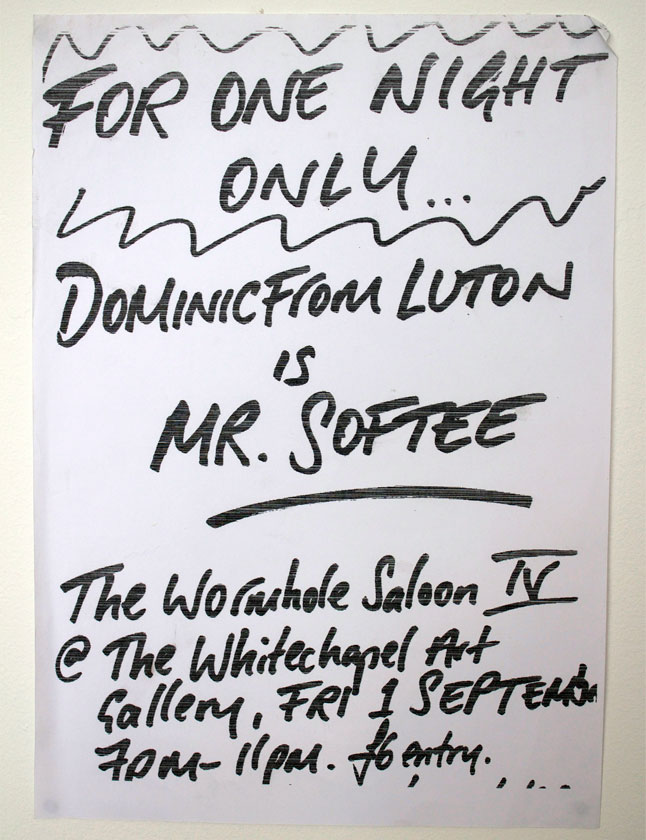 FOR ONE NIGHT
ONLY...
DOMINIC FROM LUTON
IS
MR. SOFTEE
The Wormhole Saloon IV
@ The Whitechapel Art
Gallery, FRI 1 SEPTEMBER
7pm - 11pm. £6 entry.